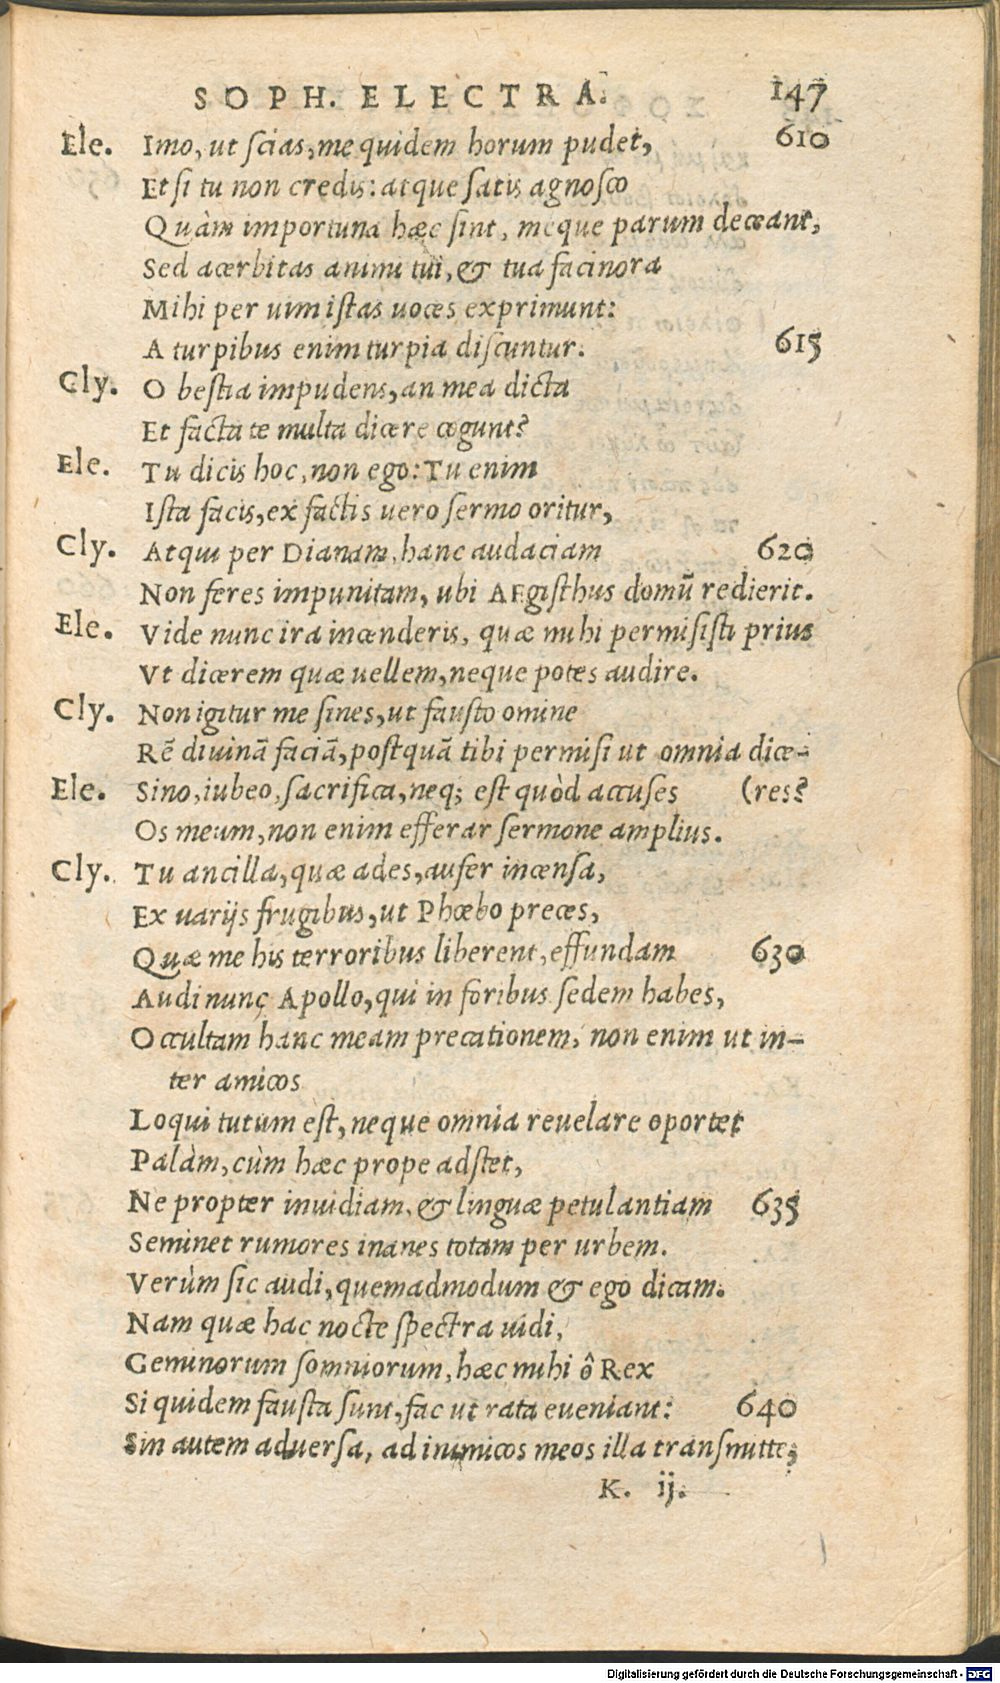 SOPH. ELECTRA. 147
Ele. Imo, ut ſcias, me quidem horum pudet, 610
Et ſi tu non credis: atque ſatis agnoſco
Quàm importuna hæc ſint, meque parum deceant,
Sed acerbitas animi tui, & tua facinora
Mihi per uim iſtas uoces exprimunt:
A turpibus enim turpia diſcuntur. 615
Cly. O beſtia impudens, an mea dicta
Et facta te multa dicere cogunt?
Ele. Tu dicis hoc, non ego: Tu enim
Iſta facis, ex factis uero ſermo oritur,
Cly. Atqui per Dianam, hanc audaciam 620
Non feres impunitam, ubi AEgiſthus domũ redierit.
Ele. Vide nunc ira incenderis, quæ mihi permiſiſti prius
Vt dicerem quæ uellem, neque potes audire.
Cly. Non igitur me ſines, ut fauſto omine
Rẽ diuinã faciã, poſtquã tibi permiſi ut omnia dice-
Ele. Sino, iubeo, ſacrifica, neq; eſt quòd accuſes (res?
Os meum, non enim efferar ſermone amplius.
Cly. Tu ancilla, quæ ades, aufer incenſa,
Ex uarijs frugibus, ut Phœbo preces,
Quæ me his terroribus liberent, effundam 630
Audi nunc Apollo, qui in foribus ſedem habes,
Occultam hanc meam precationem, non enim ut in-
ter amicos
Loqui tutum eſt, neque omnia reuelare oportet
Palàm, cùm hæc prope adſtet,
Ne propter inuidiam, & linguæ petulantiam 635
Seminet rumores inanes totam per urbem.
Verùm ſic audi, quemadmodum & ego dicam.
Nam quæ hac nocte ſpectra uidi,
Geminorum ſomniorum, hæc mihi ô Rex
Si quidem fauſta ſunt, fac ut rata eueniant: 640
Sin autem aduerſa, ad inimicos meos illa tranſmitte,
K. ij.
Digitalisierung gefördert durch die Deutsche Forschungsgemeinschaft - DFG